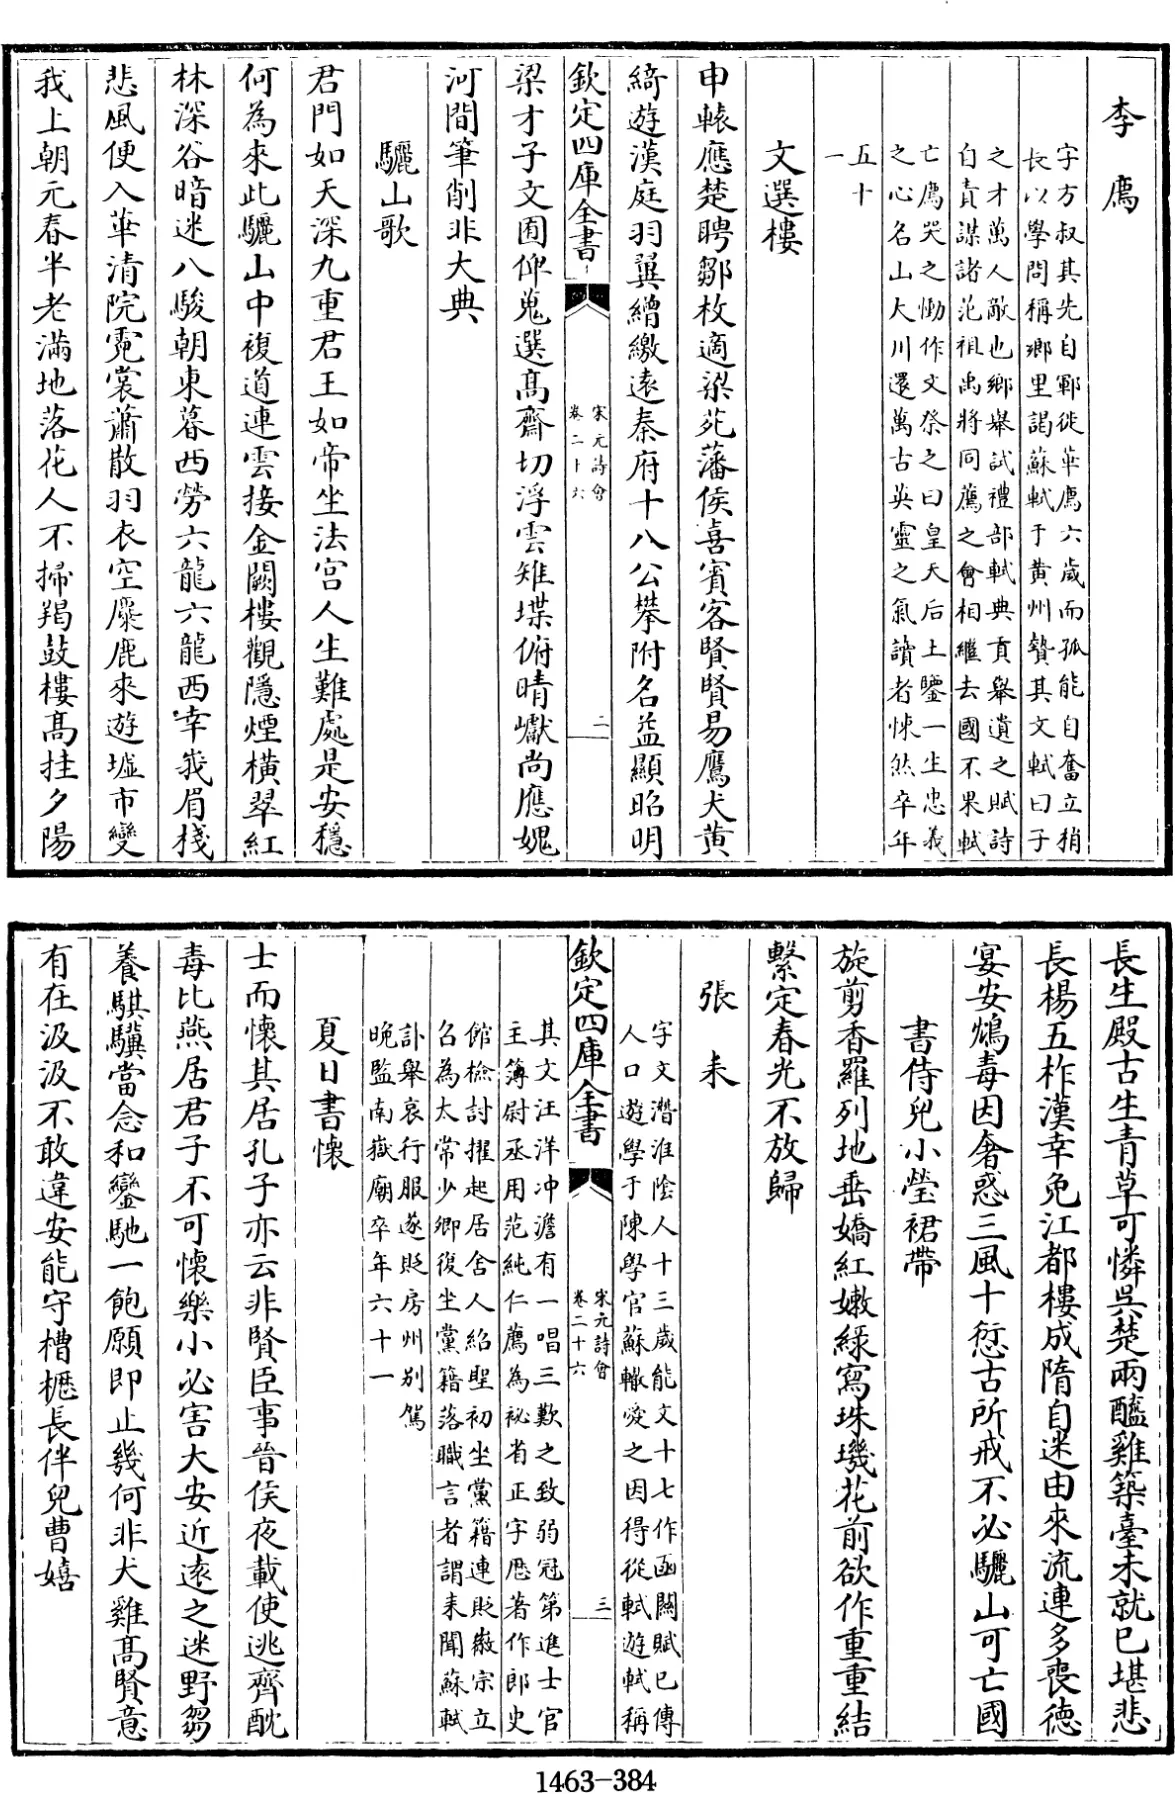 李廌
字方叔其先自鄆徙華廌六歲而孤能自奮立稍
長以學問稱鄉里謁蘇軾于黄州贄其文軾曰子
之才萬人敵也鄉舉試禮部軾典貢舉遺之賦詩
自責謀諸范祖禹將同薦之會相繼去國不果軾
亡廌哭之慟作文祭之曰皇天后土鑒一生忠義
之心名山大川還萬古英靈之氣讀者悚然卒年
五十
一
文選樓
申轅應楚聘鄒枚適梁苑藩侯喜賓客賢賢易鷹犬黄
綺遊漢庭羽翼繒繳遠秦府十八公攀附名益顯昭明
欽定四庫全書
宋元詩會
卷二十六
二
梁才子文囿仰蒐選高齋切浮雲雉堞俯晴巘尚應媿
河間筆削非大典
驪山歌
君門如天深九重君王如帝坐法宮人生難處是安穩
何為來此驪山中複道連雲接金闕樓觀隱煙橫翠紅
林深谷暗迷八駿朝東暮西勞六龍六龍西幸峩眉棧
悲風便入華清院霓裳蕭散羽衣空麋鹿來遊墟市變
我上朝元春半老滿地落花人不掃羯鼓樓高挂夕陽
長生殿古生青草可憐吳楚兩醯雞築臺未就已堪悲
長楊五柞漢幸免江都樓成隋自迷由來流連多喪德
宴安鴆毒因奢惑三風十愆古所戒不必驪山可亡國
書侍兒小瑩裙帶
旋剪香羅列地垂嬌紅嫩綠寫珠璣花前欲作重重結
繫定春光不放歸
張耒
字文潛淮陰人十三歲能文十七作函關賦已傳
人口遊學于陳學官蘇轍愛之因得從軾遊軾稱
欽定四庫全書
宋元詩會
卷二十六
三
其文汪洋冲澹有一唱三歎之致弱冠第進士官
主簿尉丞用范純仁薦為祕省正字歷著作郎史
館檢討擢起居舍人紹聖初坐黨籍連貶徽宗立
召為太常少卿復坐黨籍落職言者謂耒聞蘇軾
訃舉哀行服遂貶房州别駕
晚監南嶽廟卒年六十一
夏日書懷
士而懷其居孔子亦云非賢臣事晉侯夜載使逃齊酖
毒比燕居君子不可懷樂小必害大安近遠之迷野芻
養騏驥當念和鑾馳一飽願即止幾何非犬雞高賢意
有在汲汲不敢違安能守槽櫪長伴兒曹嬉
1463-384